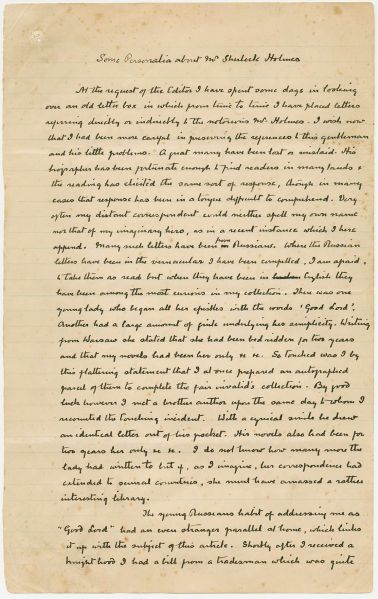 Some Personalia about Mr Sherlock Holmes
At the request of the Editor I have spent some days in looking
over an old letter box in which from time to time I have placed letters
referring directly or indirectly to the notorious Mr Holmes. I wish now
that I had been more careful in preserving the references to this gentleman
and his little problems. A great many have been lost or mislaid. His
biographer has been fortunate enough to find readers in many lands &
the reading has elicited the same sort of response, though in many
cases that response has been in a tongue difficult to comprehend. Very
often my distant correspondent could neither spell my own name
nor that of my imaginary hero, as in a recent instance which I here
append. Many such letters have been from Russians. Where the Russian
letters have been in the vernacular I have been compelled, I am afraid,
to take them as read but when they have been in English they
have been among the most curious in my collection. There was one
young lady who began all her epistles with the words 'Good Lord'.
Another had a large amount of guile underlying her simplicity. Writing
from Warsaw she stated that she had been bedridden for two years
and that my novels had been her only &c &c. So touched was I by
this flattering statement that I at once prepared an autographed
parcel of them to complete the fair invalid's collection. By good
luck however I met a brother author upon the same day to whom I
recounted the touching incident. With a cynical smile he drew
an identical letter out of his pocket. His novels also had been for
two years her only &c &c. I do not know how many more the
lady had written to but if, as I imagine, her correspondence had
extended to several countries, she must have amassed a rather
interesting library.
The young Russian's habit of addressing me as
"Good Lord" had an even stranger parallel at home, which links
it up with the subject of this article. Shortly after I received a
knighthood I had a bill from a tradesman which was quite